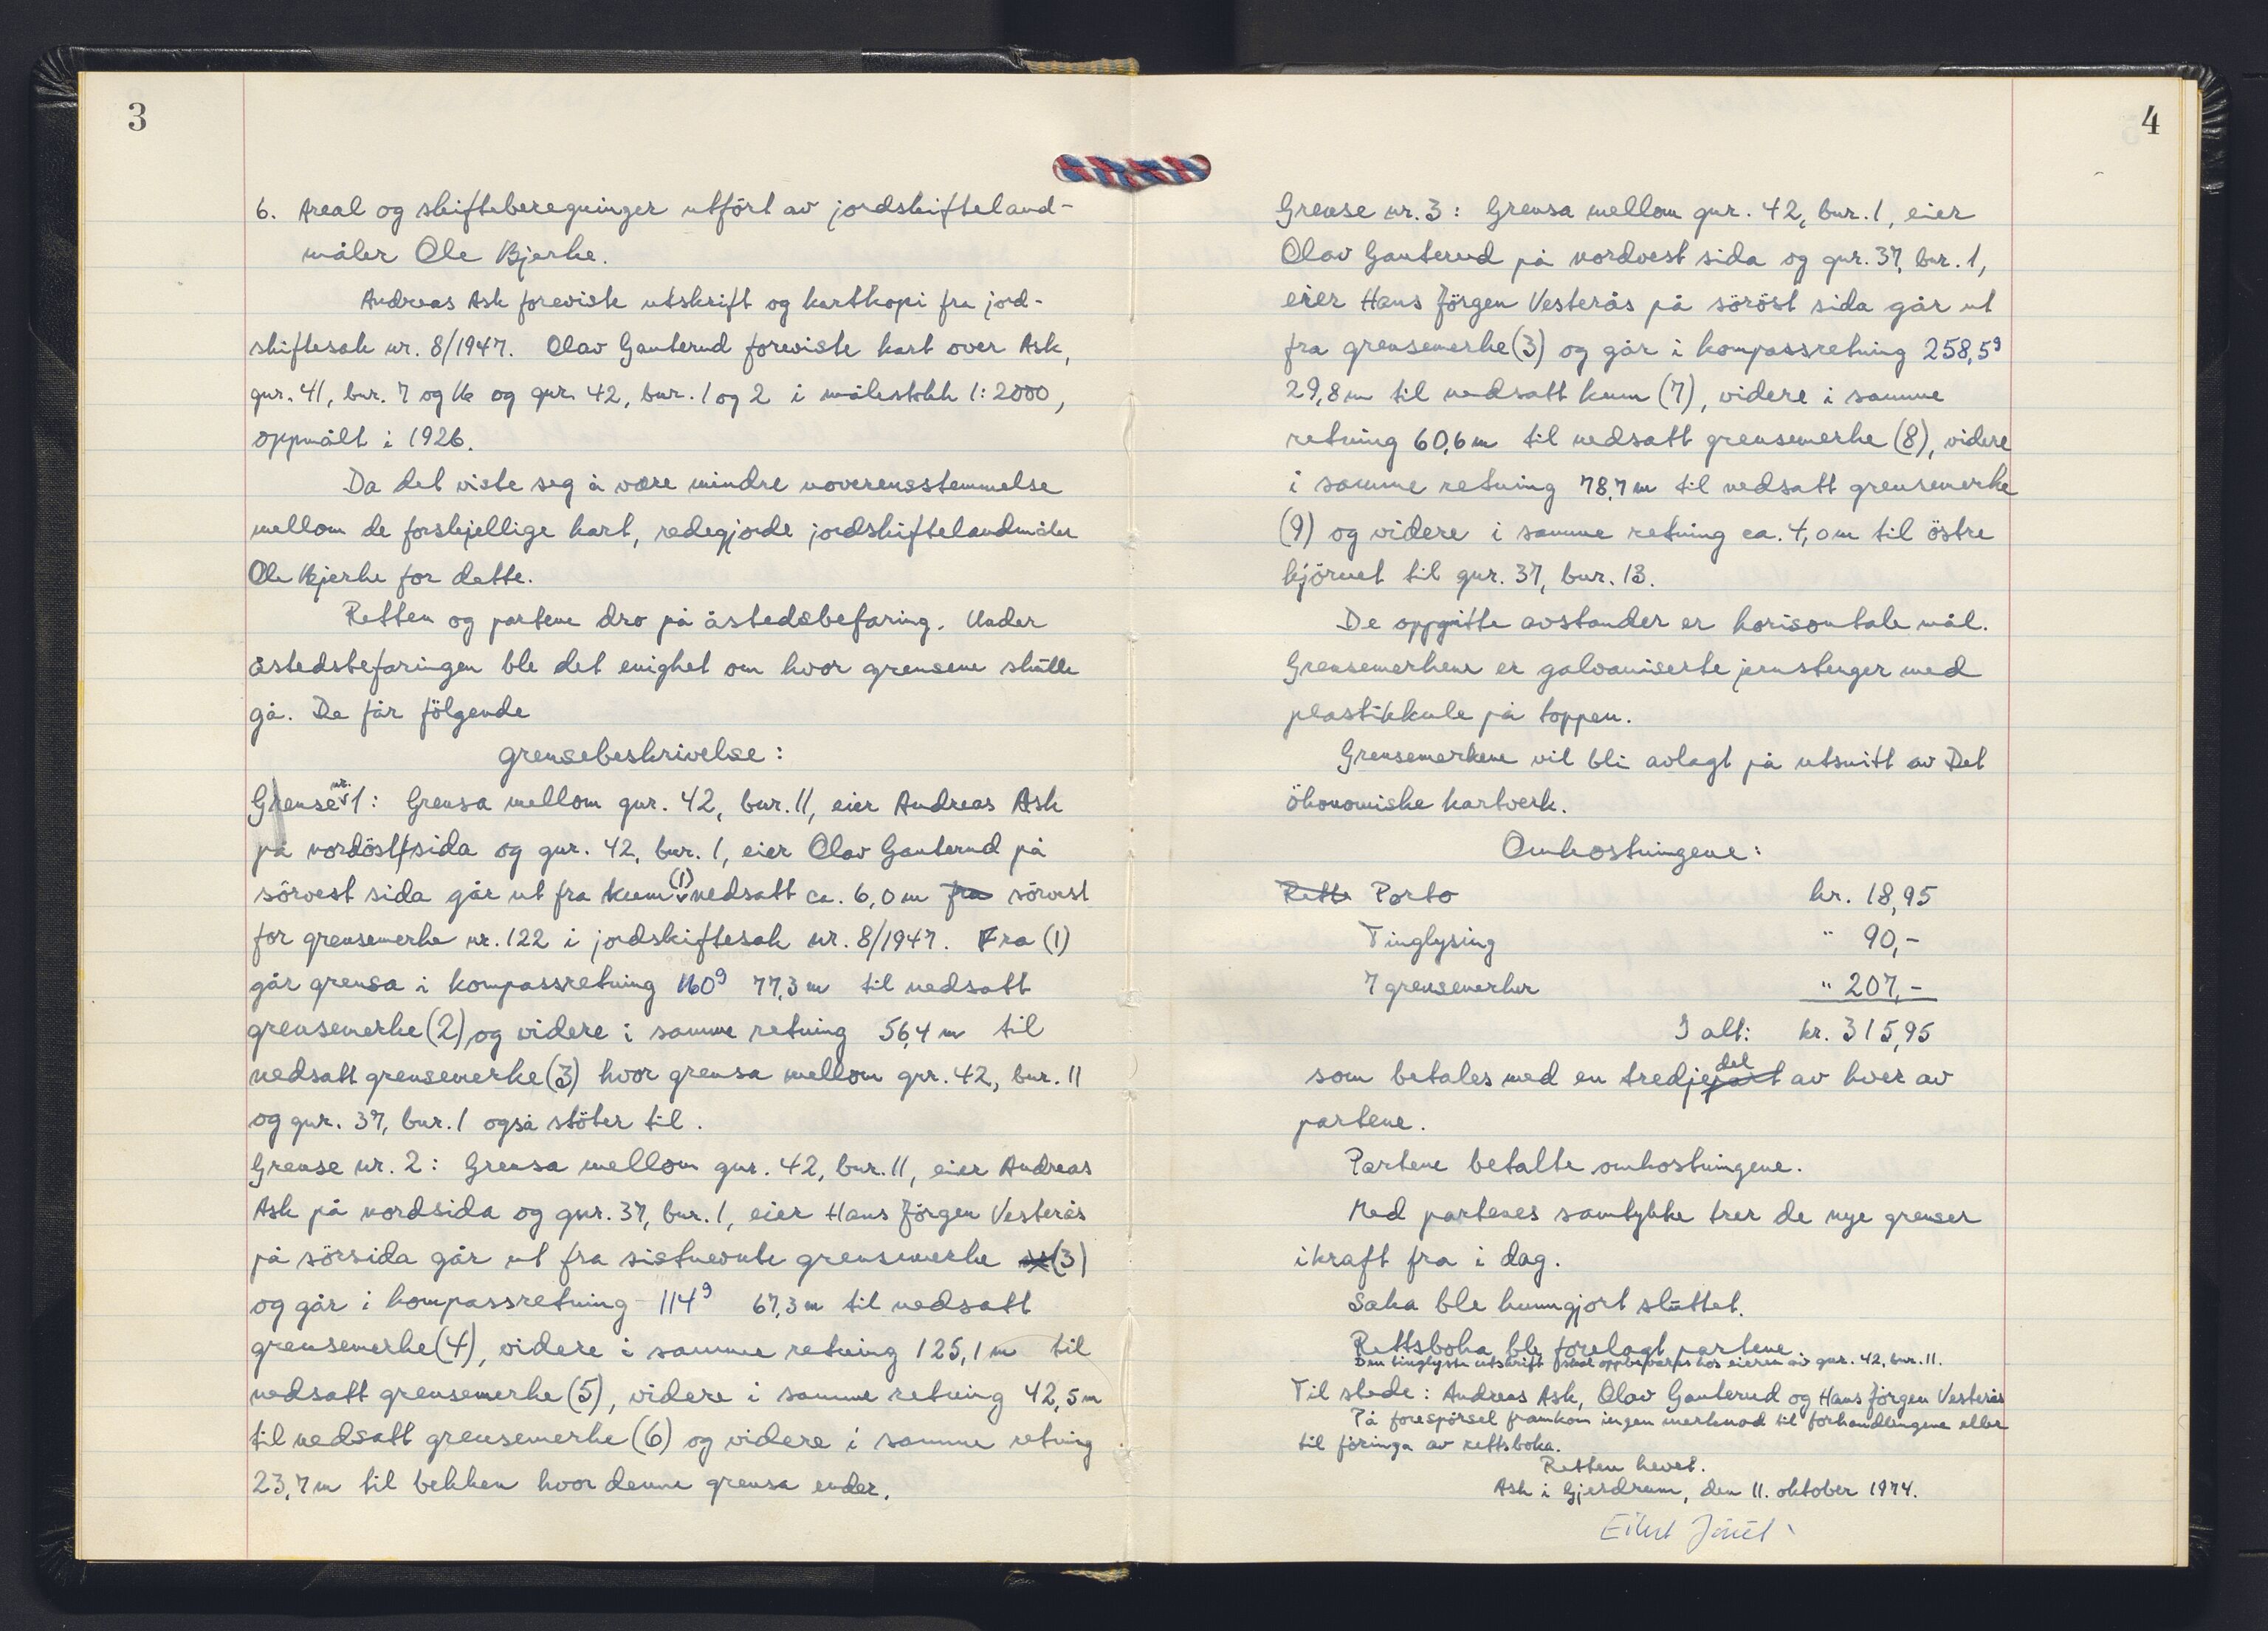 3
6. Areal og skifteberegninger utfört av jordskifteland-
måler Ole Bjerke.
Andreas Ask foreviste utskrift og kartkopi fra jord-
skiftesak nr. 8/1947. Olav Gauterud foreviste kart over Ask,
gnr. 41, bnr. 7 og 16 og gnr. 42, bnr. 1 og 2 i målestokk 1:2000,
oppmålt i 1926.
Da det viste seg å være mindre uoverensstemmelse
mellom de forskjellige kart, redegjorde jordskiftelandmåler
Ole Bjerke for dette.
Retten og partene dro på åstedsbefaring. Under
åstedsbefaringen ble det enighet om hvor grensene skulle
gå. De får fölgende
grensebeskrivelse:
Grense nr. 1: Grensa mellom gnr. 42, bnr. 11, eier Andreas Ask
på nordöst sida og gnr. 42, bnr. 1, eier Olav Gauterud på
sörvest sida går ut fra kum (1) nedsatt ca. 6,0 m fra sörvest
for grensemerke nr. 122 i jordskiftesak nr. 8/1947. Fra (1)
går grensa i kompassretning 160g 77,3 m til nedsatt
grensemerke (2) og videre i samme retning 56,4 m til
nedsatt grensemerke (3) hvor grensa mellom gnr. 42, bnr. 11
og gnr. 37, bnr. 1 også stöter til.
Grense nr. 2: Grensa mellom gnr. 42, bnr. 11, eier Andreas
Ask på nordsida og gnr. 37, bnr. 1, eier Hans Jörgen Vesterås
på sörsida går ut fra sistnevnte grensemerke (3)
og går i kompassretning 114g 67,3 m til nedsatt
grensemerke (4), videre i samme retning 125,1 m til
nedsatt grensemerke (5), videre i samme retning 42,5 m
til nedsatt grensemerke (6) og videre i samme retning
23,7 m til bekken hvor denne grensa ender.
4
Grense nr. 3: Grensa mellom gnr. 42, bnr. 1, eier
Olav Gauterud på nordvest sida og gnr. 37, bnr. 1,
eier Hans Jörgen Vesterås på söröst sida går ut
fra grensemerke (3) og går i kompassretning 258,5g
29,8 m til nedsatt kum (7), videre i samme
retning 60,6 m til nedsatt grensemerke (8), videre
i samme retning 78,7 m til nedsatt grensemerke
(9) og videre i samme retning ca. 4,0 m til östre
hjörnet til gnr. 37, bnr. 13.
De oppgitte avstander er horisontale mål.
Grensemerkene er galvaniserte jernstenger med
plastikkule på toppen.
Grensemerkene vil bli avlagt på utsnitt av Det
ökonomiske kartverk.
Omkostningene:
Rette Porto kr. 18,95
Tinglysing " 90,-
7 grensemerker " 207,-
I alt: kr. 315,95
som betales med en tredjepart del av hver av
partene.
Partene betalte omkostningene.
Med partenes samtykke trer de nye grenser
ikraft fra i dag.
Saka ble kunngjort sluttet.
Rettsboka ble forelagt partene
Den tinglyste utskrift skal oppbevares hos eieren av gnr. 42, bnr. 11.
Til stede: Andreas Ask, Olav Gauterud og Hans Jörgen Vesterås
På forespörsel framkom ingen merknad til forhandlingene eller
til föringa av rettsboka.
Retten hevet.
Ask i Gjerdrum, den 11. oktober 1974.